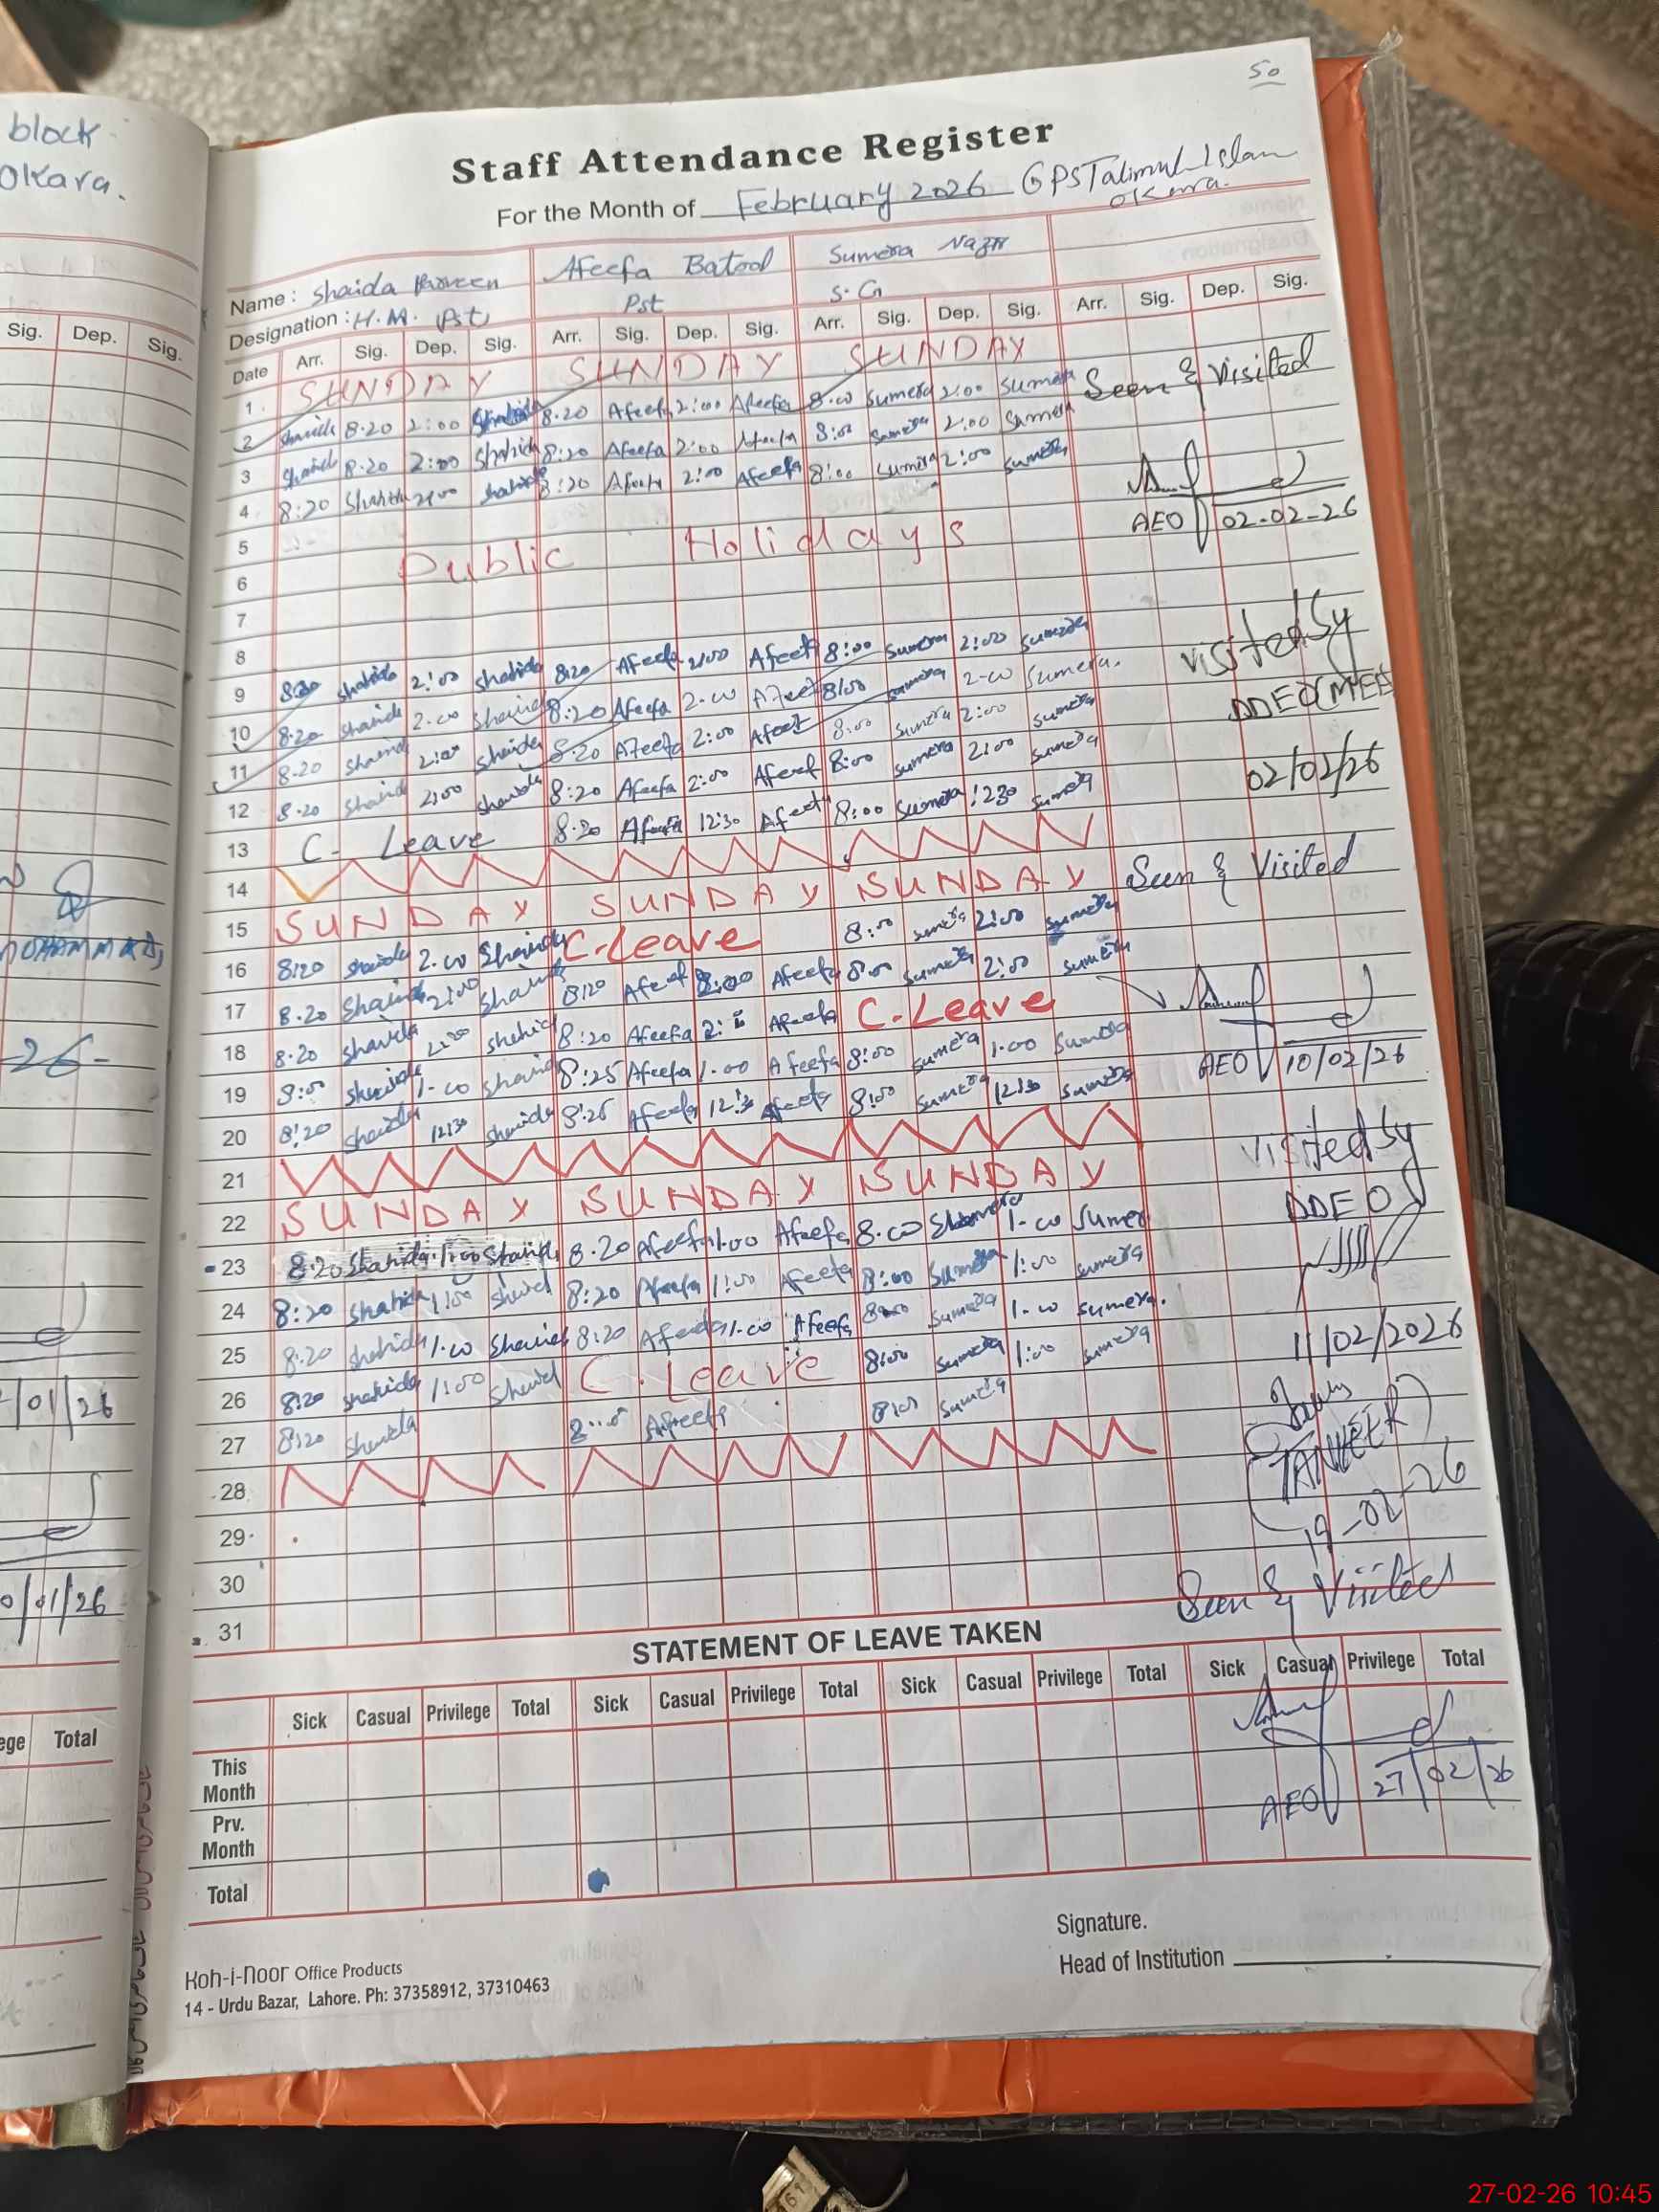 50
Staff Attendance Register
For the Month of February 2026 GPS Talimul Islam
Okara.
Name : Shaida Parveen Afeefa Batool Sumera Nazir
Designation : H.M. (Pst) Pst S.G
Date Arr. Sig. Dep. Sig. Arr. Sig. Dep. Sig. Arr. Sig. Dep. Sig. Arr. Sig. Dep. Sig.
1 SUNDAY SUNDAY SUNDAY
2 Shaida 8.20 2:00 Shahida 8.20 Afeefa 2:00 Afeefa 8.00 Sumera 2:00 Sumera Seen & Visited
3 Shahid 8.20 2:00 Shahida 8:20 Afeefa 2:00 Afeefa 8:00 Sumera 2:00 Sumera
4 8:20 Shahida 2:00 Shahida 8:20 Afeefa 2:00 Afeefa 8:00 Sumera 2:00 Sumera
AEO 02-02-26
5 Public Holidays
6
7
8
9 8:20 Shahida 2:00 Shahida 8:20 Afeefa 2:00 Afeefa 8:00 Sumera 2:00 Sumera visited by
10 8.20 Shaida 2.00 Shaida 8:20 Afeefa 2.00 Afeefa 8:00 Sumera 2-00 Sumera. DDEO(MEE
11 8.20 Shaida 2:00 Shaida 8.20 Afeefa 2:00 Afeef 8:00 Sumera 2:00 Sumera
12 8.20 Shaid 2:00 Shaida 8:20 Afeefa 2:00 Afeef 8:00 Sumera 2:00 Sumera 02/02/26
13 C- Leave 8.20 Afeefa 12:30 Afeefa 8:00 Sumera 1230 Sumera
14
15 SUNDAY SUNDAY SUNDAY Seen & Visited
16 8:20 Shaida 2.00 Shaida C-Leave 8:00 Sumera 2:00 Sumera
17 8.20 Shaida 2:00 Shaida 8:20 Afeef 2:00 Afeefa 8:00 Sumera 2:00 Sumera
18 8.20 Shavida 2:00 Shahid 8:20 Afeefa 2: Afeefa C.Leave
19 8:00 Shaida 1-00 Shaida 8:25 Afeefa 1.00 Afeefa 8:00 Sumera 1.00 Sumera AEO 10/02/26
20 8:20 Shaida 12:30 Shaida 8:25 Afeefa 12:30 Afeefa 8:00 Sumera 12:30 Sumera
21 visited by
22 SUNDAY SUNDAY SUNDAY DDEO
23 8.20 Shahida 1:00 Shaida 8.20 Afeefa 1.00 Afeefa 8.00 Sumera 1-00 Sumera
24 8:20 Shahida 1:00 Shaid 8:20 Afeefa 1:00 Afeefa 8:00 Sumera 1:00 Sumera
25 8.20 Shahida 1.00 Shaida 8:20 Afeefa 1-00 Afeefa 8:00 Sumera 1-00 Sumera. 11/02/2026
26 8:20 Shahida 1:00 Shaid C.Leave 8:00 Sumera 1:00 Sumera
27 8:20 Shaida Afreefa 8:00 Sumera
(TANVEER)
19-02-26
28
29
30
31
Seen & Visited
STATEMENT OF LEAVE TAKEN
Sick Casual Privilege Total Sick Casual Privilege Total Sick Casual Privilege Total Sick Casual Privilege Total
This Month
Prv. Month
AEO 27/02/26
Total
Signature.
Head of Institution
Koh-i-noor Office Products
14 - Urdu Bazar, Lahore. Ph: 37358912, 37310463
block
Okara.
Sig. Dep. Sig.
-26-
/01/26
0/01/26
ege Total
27-02-26 10:45